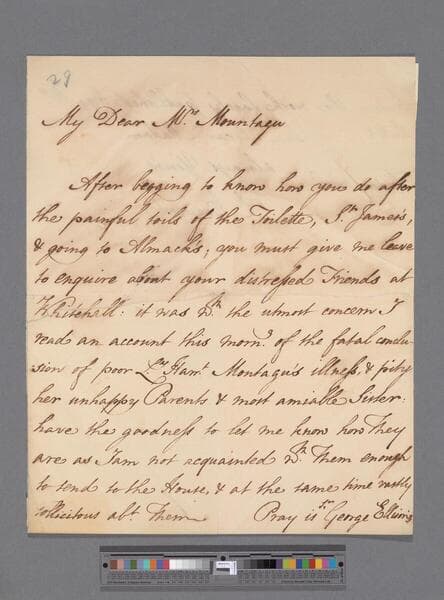 29
My Dear Mrs Mountagu
After begging to know how you do after
the painful toils of the Toilette, St James's,
& going to Almacks; you must give me leave
to enquire about your distressed Friends at
Whitehall: it was wth the utmost concern I
read an account this morng of the fatal conclu-
sion of poor Ly Hart Montagu's illness, & pity
her unhappy Parents & most amiable Sister:
have the goodness to let me know how They
are as I am not acquainted wth Them enough
to send to the House, & at the same time vastly
sollicitous abt Them Pray is Sr George